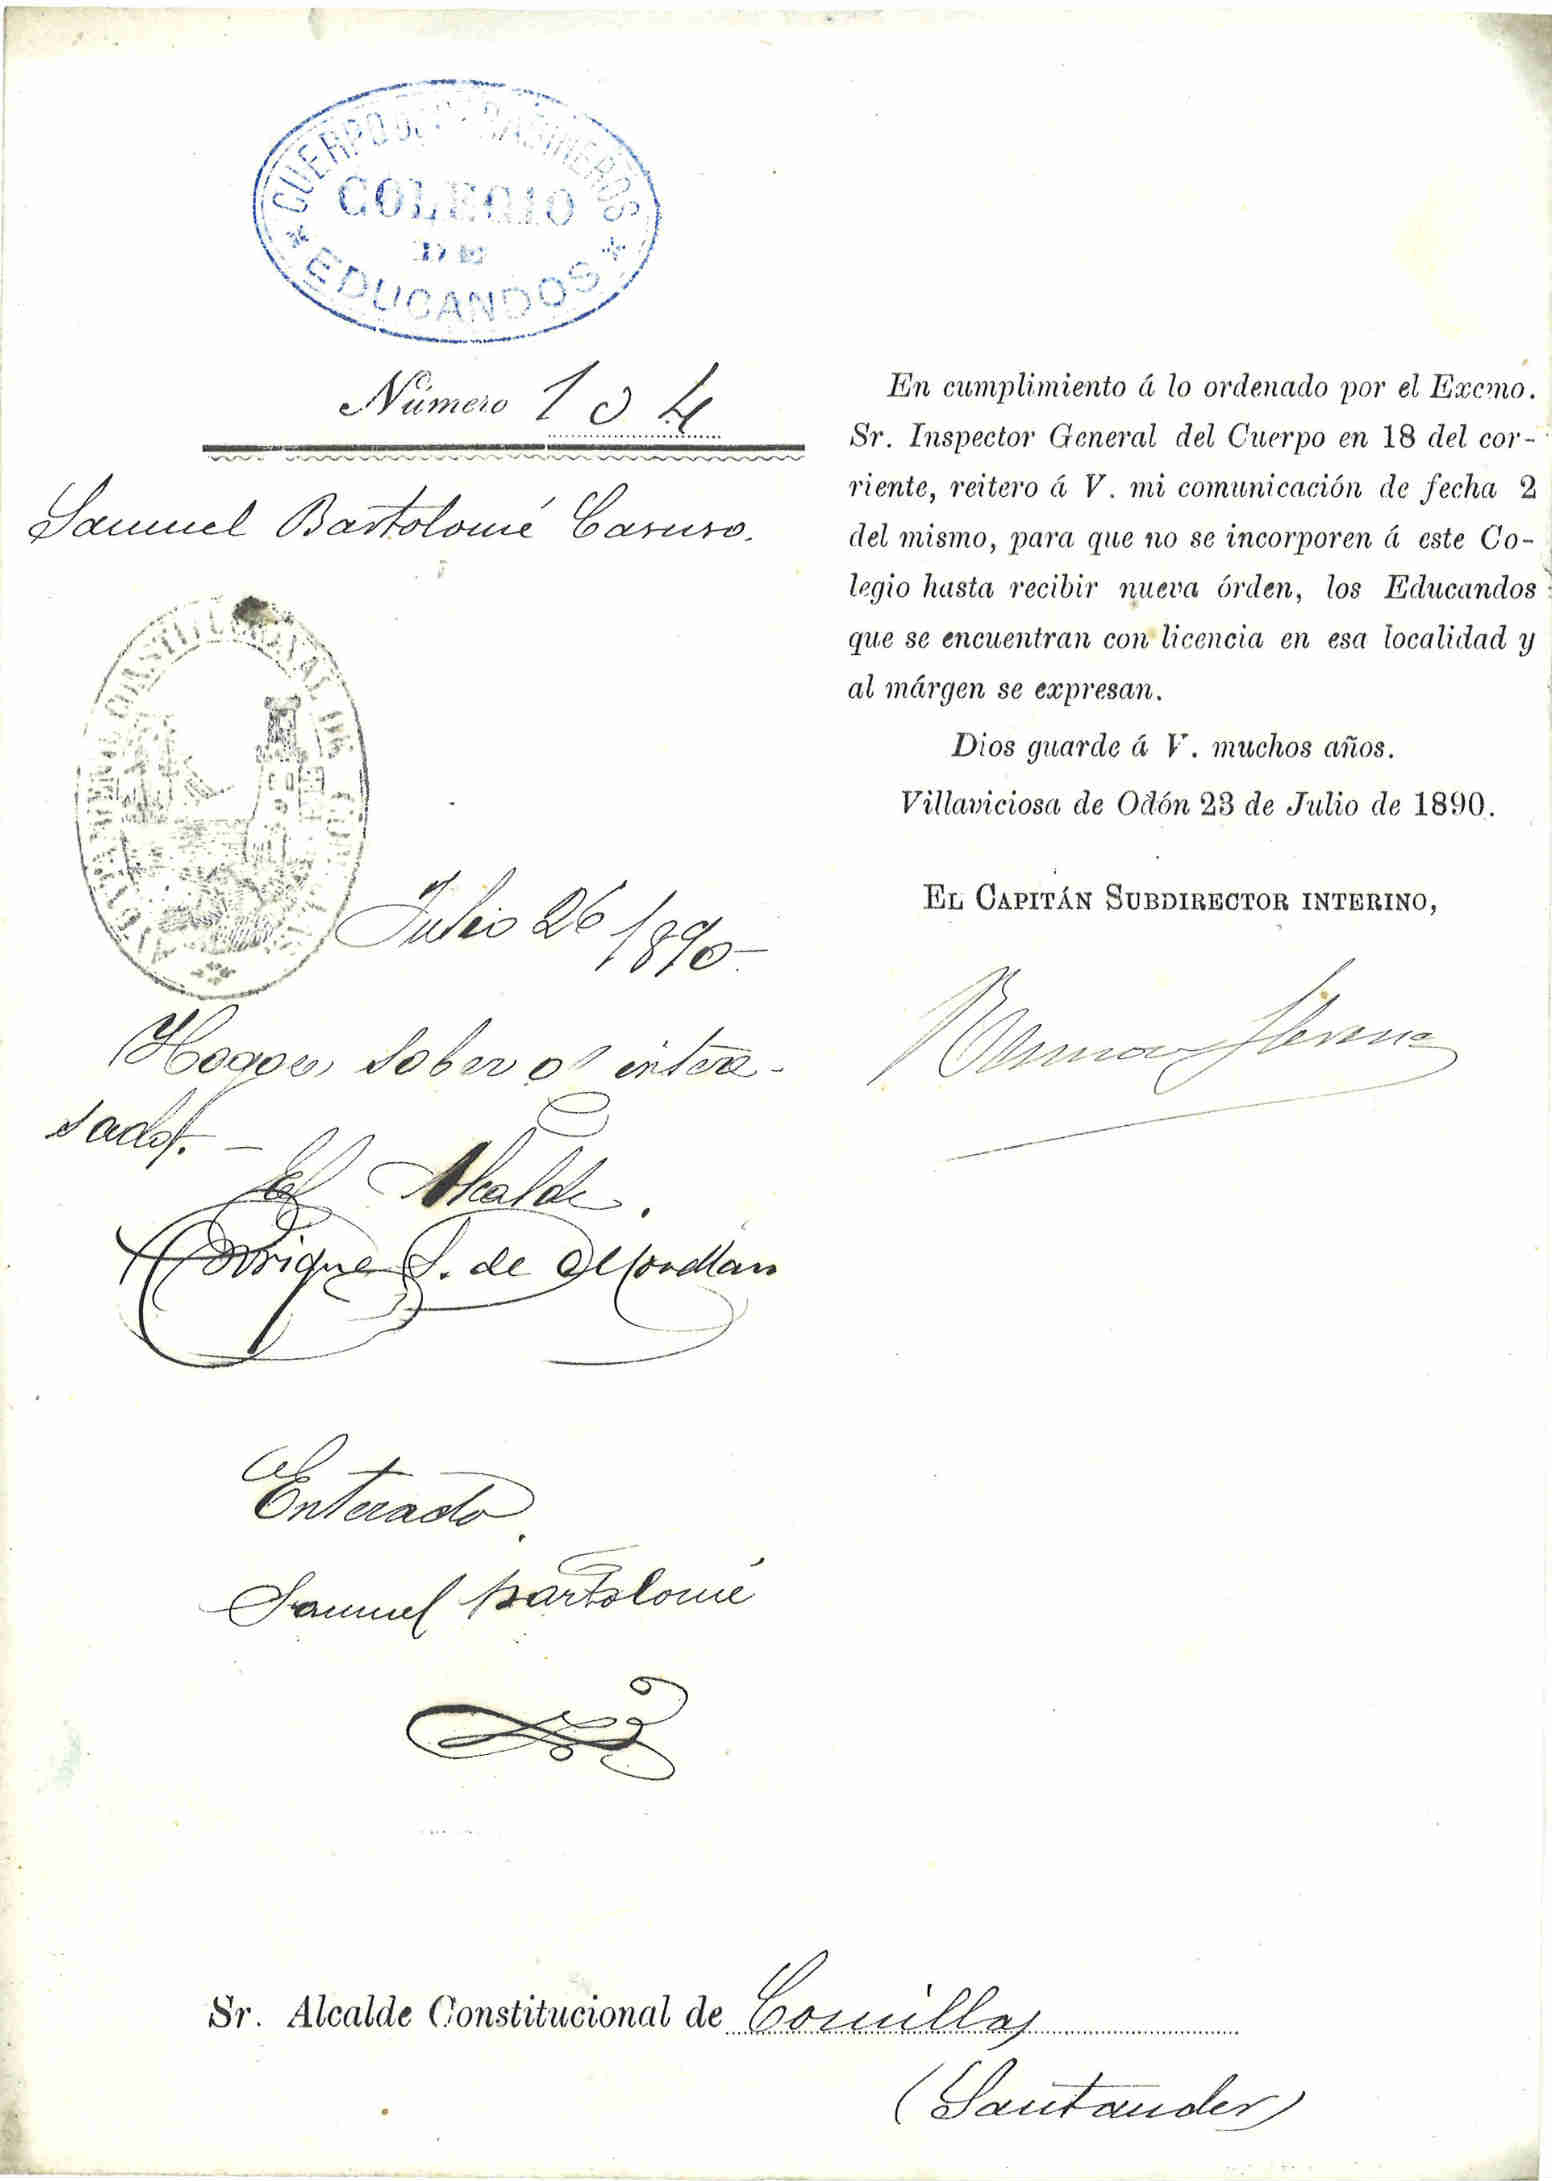 CUERPO DE CARABINEROS
COLEGIO
DE
EDUCANDOS
Número 104
Samuel Bartolomé Casuso.
AYUNTAMIENTO CONSTITUCIONAL DE COMILLAS
Julio 26 1890
Hagase saber al intere-
sado.
El Alcalde.
Enrique S. de Movellan
Enterado.
Samuel Bartolomé
En cumplimiento á lo ordenado por el Excmo.
Sr. Inspector General del Cuerpo en 18 del cor-
riente, reitero á V. mi comunicación de fecha 2
del mismo, para que no se incorporen á este Co-
legio hasta recibir nueva órden, los Educandos
que se encuentran con licencia en esa localidad y
al márgen se expresan.
Dios guarde á V. muchos años.
Villaviciosa de Odón 23 de Julio de 1890.
EL CAPITÁN SUBDIRECTOR INTERINO,
Sr. Alcalde Constitucional de Comillas
(Santander)